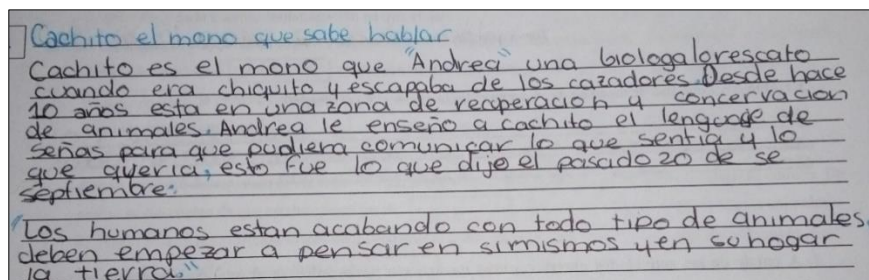 Cachito el mono que sabe hablar
Cachito es el mono que "Andrea" una biologa lo rescato
cuando era chiquito y escapaba de los cazadores. Desde hace
10 años esta en una zona de recuperacion y concervacion
de animales. Andrea le enseño a cachito el lenguage de
señas para que pudiera comunicar lo que sentia y lo
que queria, esto fue lo que dijo el pasado 20 de se
septiembre:
"Los humanos estan acabando con todo tipo de animales
deben empezar a pensar en simismos y en su hogar
la tierra"